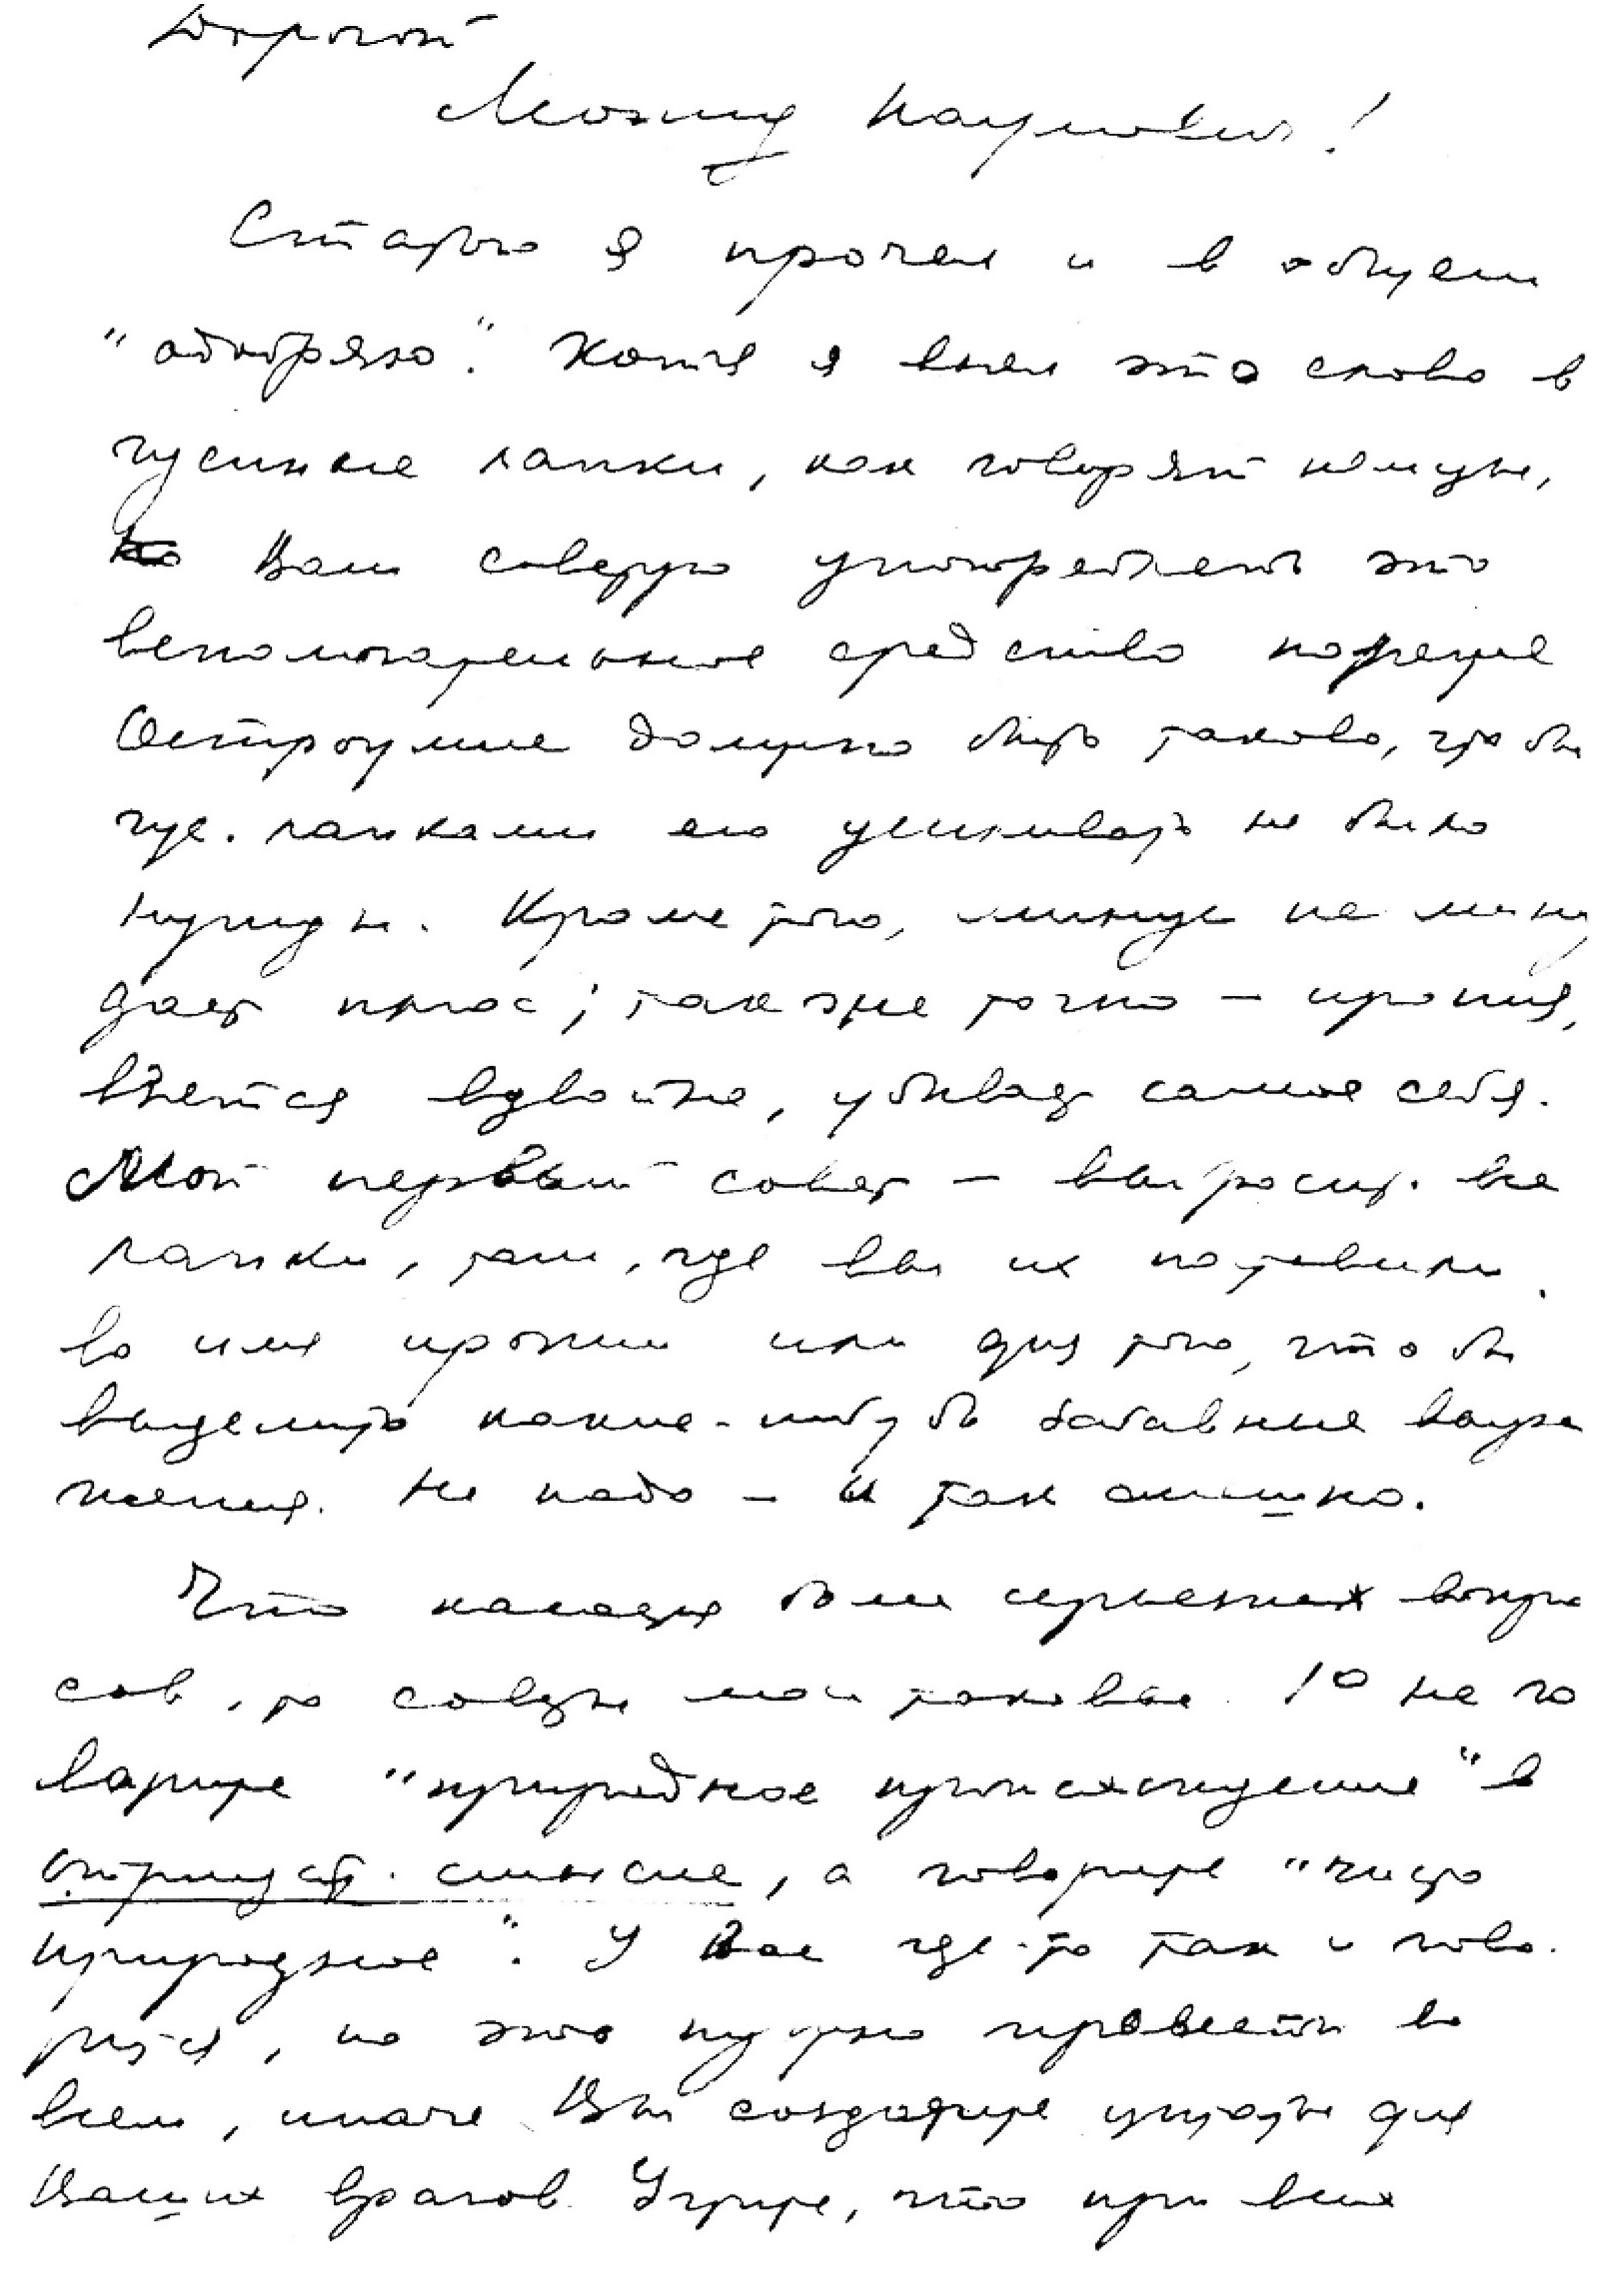 Дорогой
Леонид Наумович!
Статью я прочел и в общем
"одобряю". Хотя я внял это слово в
гусиные лапки, как говорят немцы,
но Вам советую употреблять это
вспомогательное средство пореже
Остроумие должно быть таково, чтобы
гус. лапками его усиливать не было
нужды. Кроме того, минус на мину
дает плюс; так же точно – ирония,
взятая вдвойне, убивает самое себя.
Мой первый совет – выбросить все
лапки, там, где вы их поставили
во имя иронии или для того, чтобы
выделить какие-нибудь забавные выра
жения. Не надо – и так слишно.
Что касается более серьезных вопро
сов, то советы мои таковы. 1° не го
ворите "природное происхождение" в
отрицат. смысле, а говорите "чисто
природное". У Вас где-то так и гово
рится, но это нужно провести во
всем, иначе Вы создадите уступы для
Ваших врагов. Учтите, что при всех